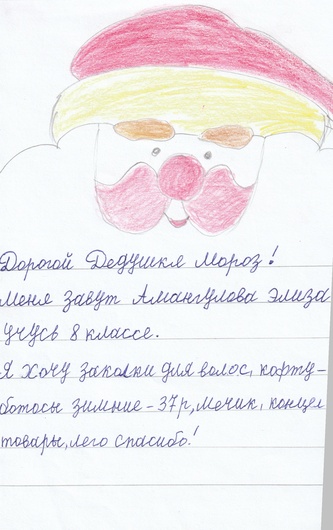 Дорогой Дедушка Мороз!
Меня завут Амангулова Элиза
учусь 8 классе.
Я хочу заколки для волос, карту-
ботосы зимние - 37р, мечик, концел
товары, лего спасибо!